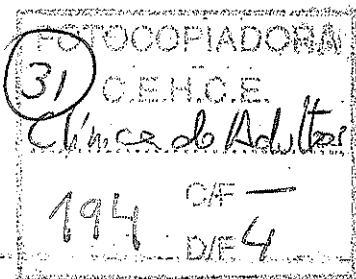 FOTOCOPIADORA
31 C.E.H.C.E.
Clínica de Adultos
194 C/F —
D/F 4